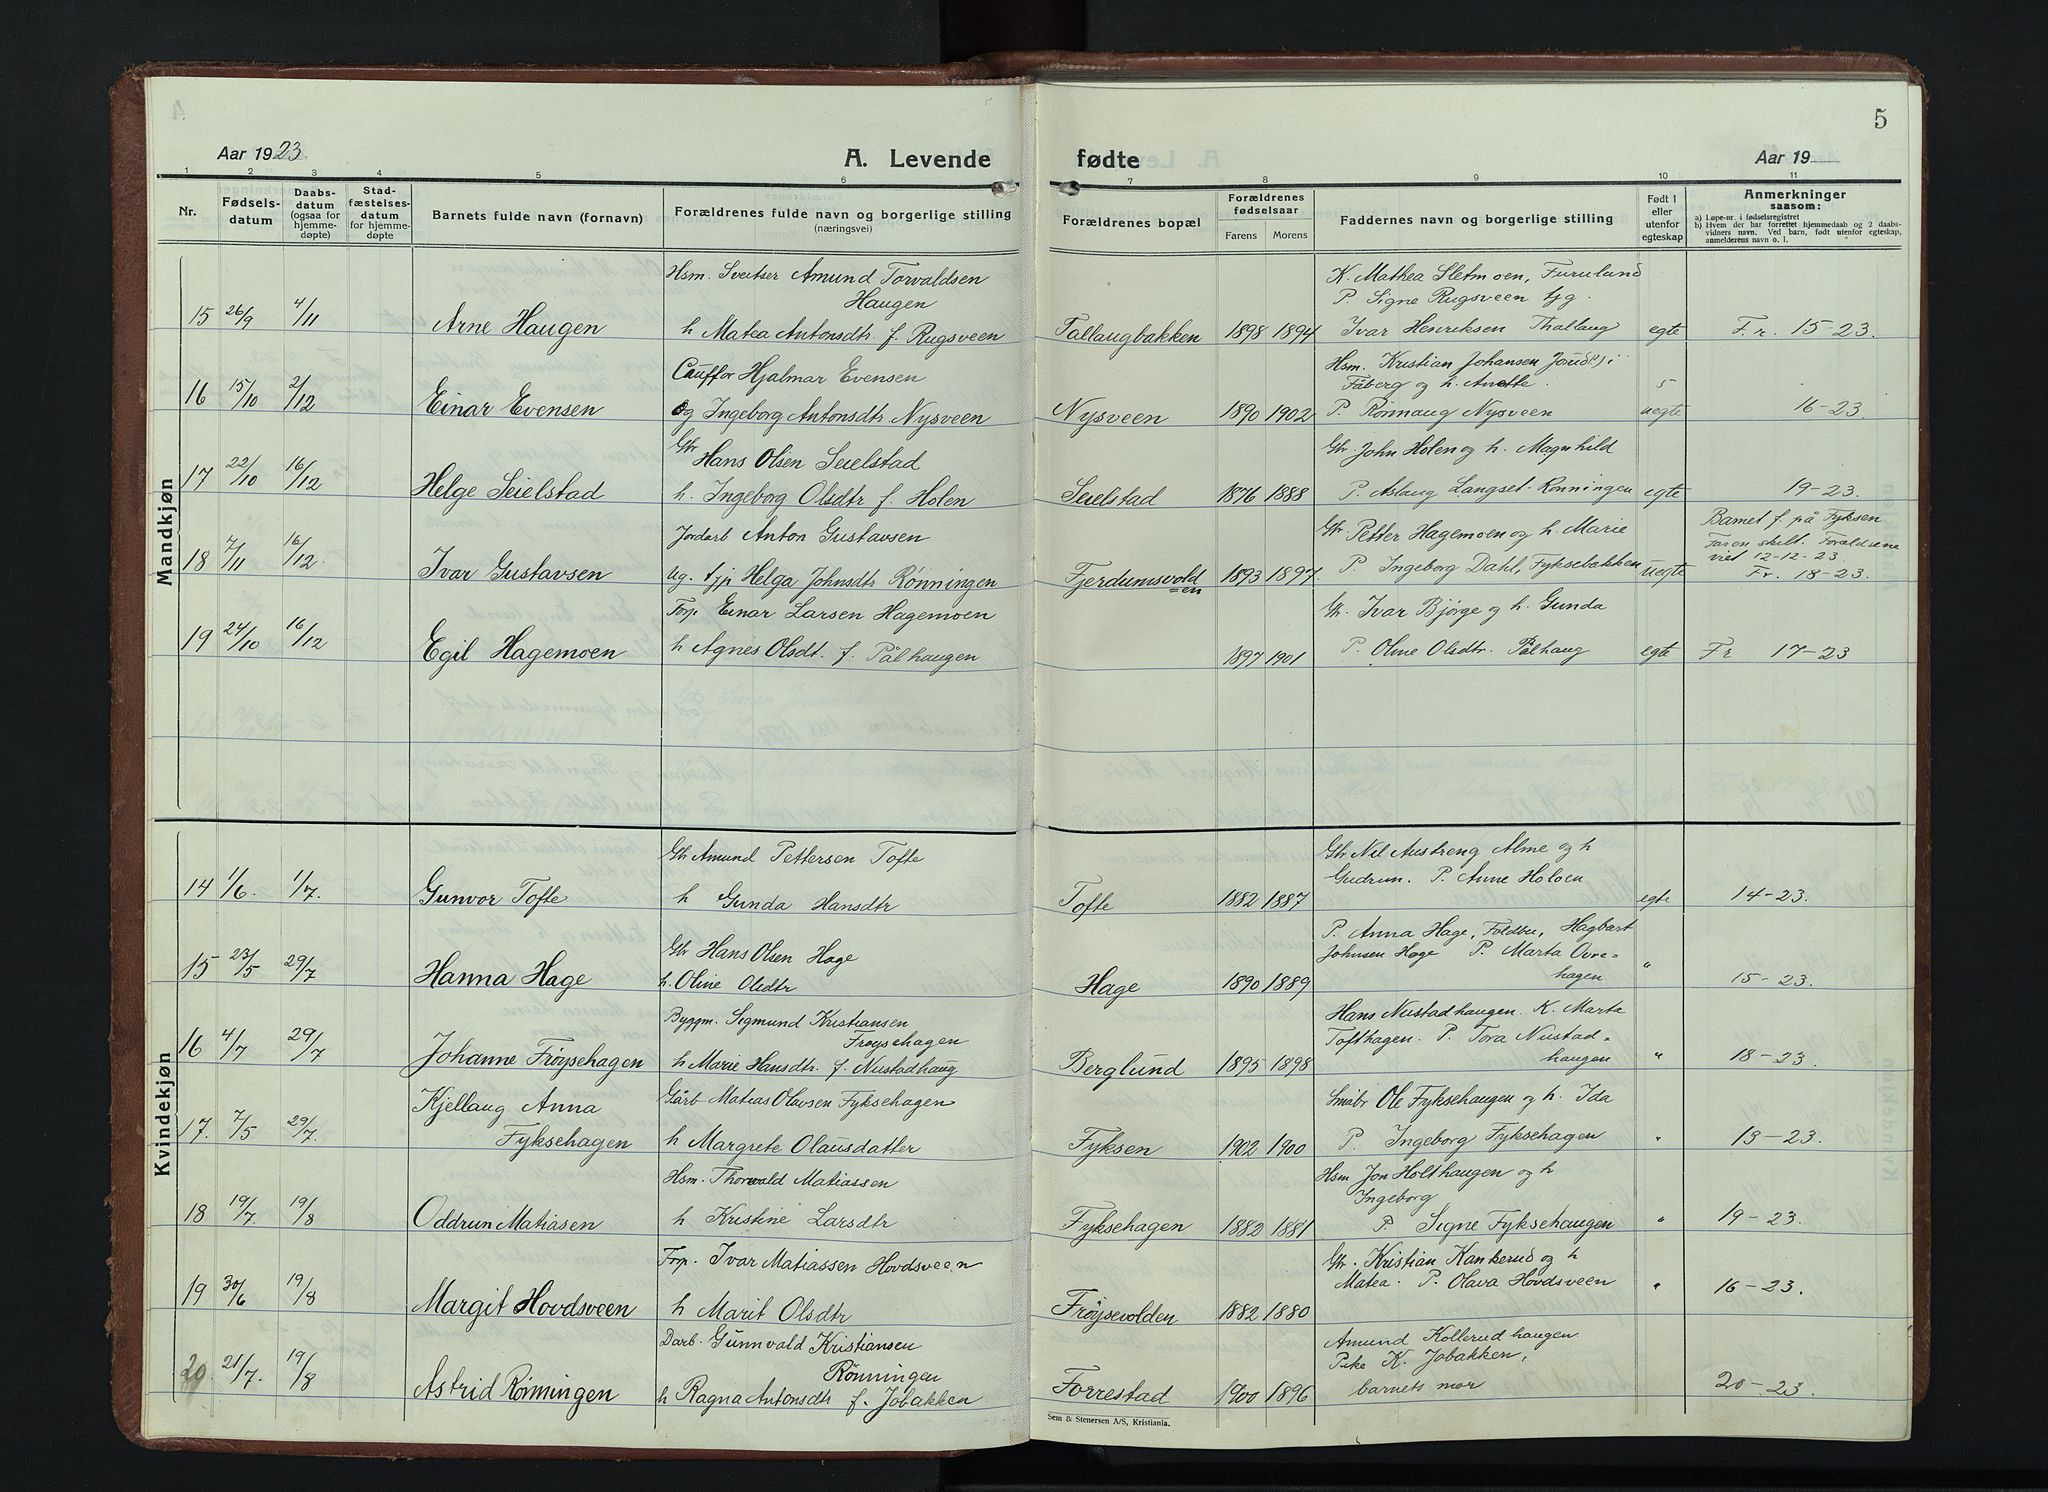 5
Aar 1923.
A. Levende
fødte
Aar 19
1 2 3 4 5 6 7 8 9 10 11
Nr.
Fødsels-
datum
Daabs-
datum
(ogsaa for
hjemme-
døpte)
Stad-
fæstelses-
datum
for hjemme-
døpte
Barnets fulde navn (fornavn)
Forældrenes fulde navn og borgerlige stilling
(næringsvei)
Forældrenes bopæl
Forældrenes
fødselsaar
Farens Morens
Faddernes navn og borgerlige stilling
Født i
eller
utenfor
egteskap
Anmerkninger
saasom:
a) Løpe-nr. i fødselsregistret
b) Hvem der har forrettet hjemmedaab og 2 daabs-
vidners navn. Ved barn, født utenfor egteskap,
anmelderens navn o. l.
Mandkjøn
Hsm. Sveitser Amund Torvaldsen
Haugen
K. Mathea Sletmoen, Furulund
P. Signe Rugsveen tjg.
15 26/9 4/11 Arne Haugen h Matea Antonsdtr f. Rugsveen Tallaugbakken 1898 1894 Ivar Henriksen Thallaug egte F. r. 15-23.
Cauffor Hjalmar Evensen
Hsm. Kristian Johansen
Fåberg og h. Anette.
16 15/10 2/12 Einar Evensen og Ingeborg Antonsdtr Nysveen Nysveen 1890 1902 P. Rønnaug Nysveen uegte 16-23.
Gbr Hans Olsen Seielstad
Gbr. John Holen og h. Magnhild
17 22/10 16/12 Helge Seielstad h. Ingeborg Olsdtr f. Holen Seielstad 1876 1888 P. Aslaug Langset-Rønningen egte 19-23.
Jordarb Anton Gustavsen
Gbr Petter Hagemoen og h. Marie
Barnet f. på Fyksen
Faren skilt. Foreldrene
viet 12-12-23.
18 7/11 16/12. Ivar Gustavsen ug. tjp Helga Johnsdtr Rønningen Fjerdumsvold=en 1893 1897 P. Ingeborg Dahl, Fyksebakken uegte Fr. 18-23.
Forp. Einar Larsen Hagemoen
Gbr. Ivar Bjørge og h. Gunda
19 24/10 16/12 Egil Hagemoen h Agnes Olsdt. f. Pålhaugen 1897 1901 P. Oline Olsdtr. Pålhaug egte Fr 17-23
Kvindekjøn
Gbr Amund Pettersen Tofte
Gbr Nil Austreng Alme og h
Gudrun. P. Anne Holoen
14 1/6. 1/7. Gunvor Tofte h Gunda Hansdtr Tofte 1882 1887 egte 14-23.
Gbr Hans Olsen Hage
P. Anna Hage, Foldbu, Hagbart
Johnsen Hage P. Marta Øvre-
hagen
15 23/5 29/7 Hanna Hage h. Oline Olsdtr Hage 1890 1889 " 15-23.
Byggm. Sigmund Kristiansen
Frøysehagen
Hans Nustadhaugen. K. Marta
Tofthagen. P. Tora Nustad=
haugen
16 4/7 29/7 Johanne Frøysehagen h Marie Hansdtr. f. Nustadhaug Berglund 1895 1898 " 18-23.
Kjellaug Anna
Fyksehagen
Gårb Matias Olavsen Fyksehagen
Småbr Ole Fyksehaugen og h. Ida
17. 7/5 29/7. h Margrete Olausdatter Fyksen 1902 1900 P. Ingeborg Fyksehagen " 13-23.
Hsm. Thorvald Matiassen
Hsm Jon Holthaugen og h
Ingeborg
18 19/7 19/8 Oddrun Matiasen h Kristine Larsdtr Fyksehagen 1882 1881 P. Signe Fyksehaugen " 19-23.
Forp. Ivar Matiassen Hovdsveen
Gbr. Kristian Kankerud og h
Matea. P. Olava Hovdsveen
19 30/6 19/8 Margit Hovdsveen h Marit Olsdtr Frøysevolden 1882 1880 " 16-23.
Darb. Gunnvald Kristiansen
Rønningen
Amund Kollerud haugen
Pike K. Jobakken,
barnets mor
20. 21/7. 19/8 Astrid Rønningen h Ragna Antonsdtr f. Jobakken Forrestad 1900 1896 20-23.
Sem & Stenersen A/S, Kristiania.